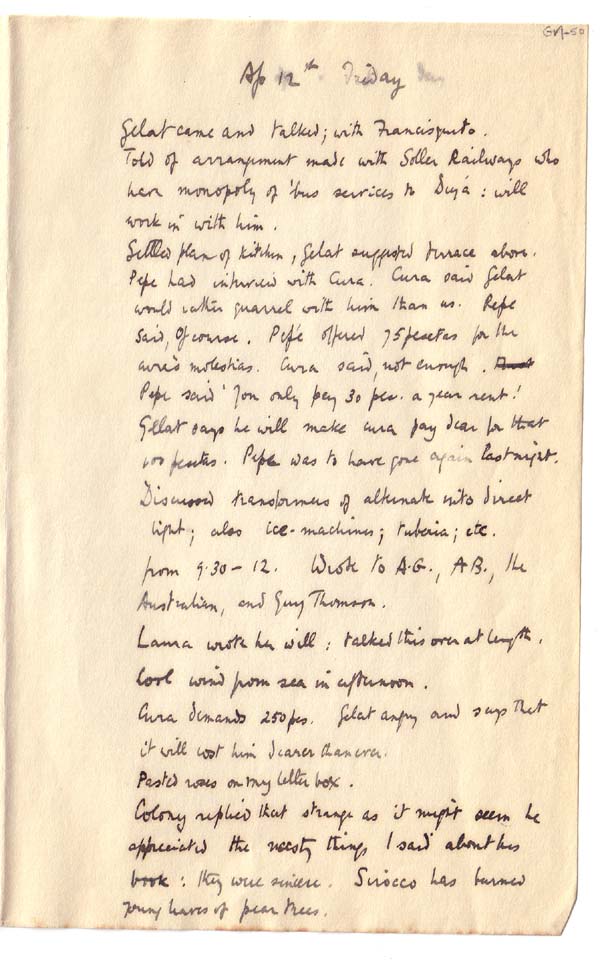 GM-50
Ap 12th Friday
Gelat came and talked; with Francisquito.
Told of arrangement made with Soller Railways who
have monopoly of 'bus services to Deyá: will
work in with him.
Settled plan of kitchen, Gelat suggested terrace above.
Pepe had interview with Cura. Cura said Gelat
would rather quarrel with him than us. Pepe
said, Of course. Pepe offered 75 pesetas for the
cura's molestias. Cura said, not enough.
Pepe said 'You only pay 30 pes. a year rent!'
Gelat says he will make cura pay dear for that
100 pesetas. Pepe was to have gone again last night.
Discussed transformers of alternate into direct
light; also ice-machines; tuberia; etc.
from 9.30 – 12. Wrote to A.G., A.B., the
Australian, and Guy Thomson.
Laura wrote her will: talked this over at length.
Cool wind from sea in afternoon.
Cura demands 250 pes. Gelat angry and says that
it will cost him dearer than ever.
Pasted roses on my letter box.
Colony replied that strange as it might seem he
appreciated the nasty things I said about his
book: they were sincere. Sirocco has burned
young leaves of pear trees.